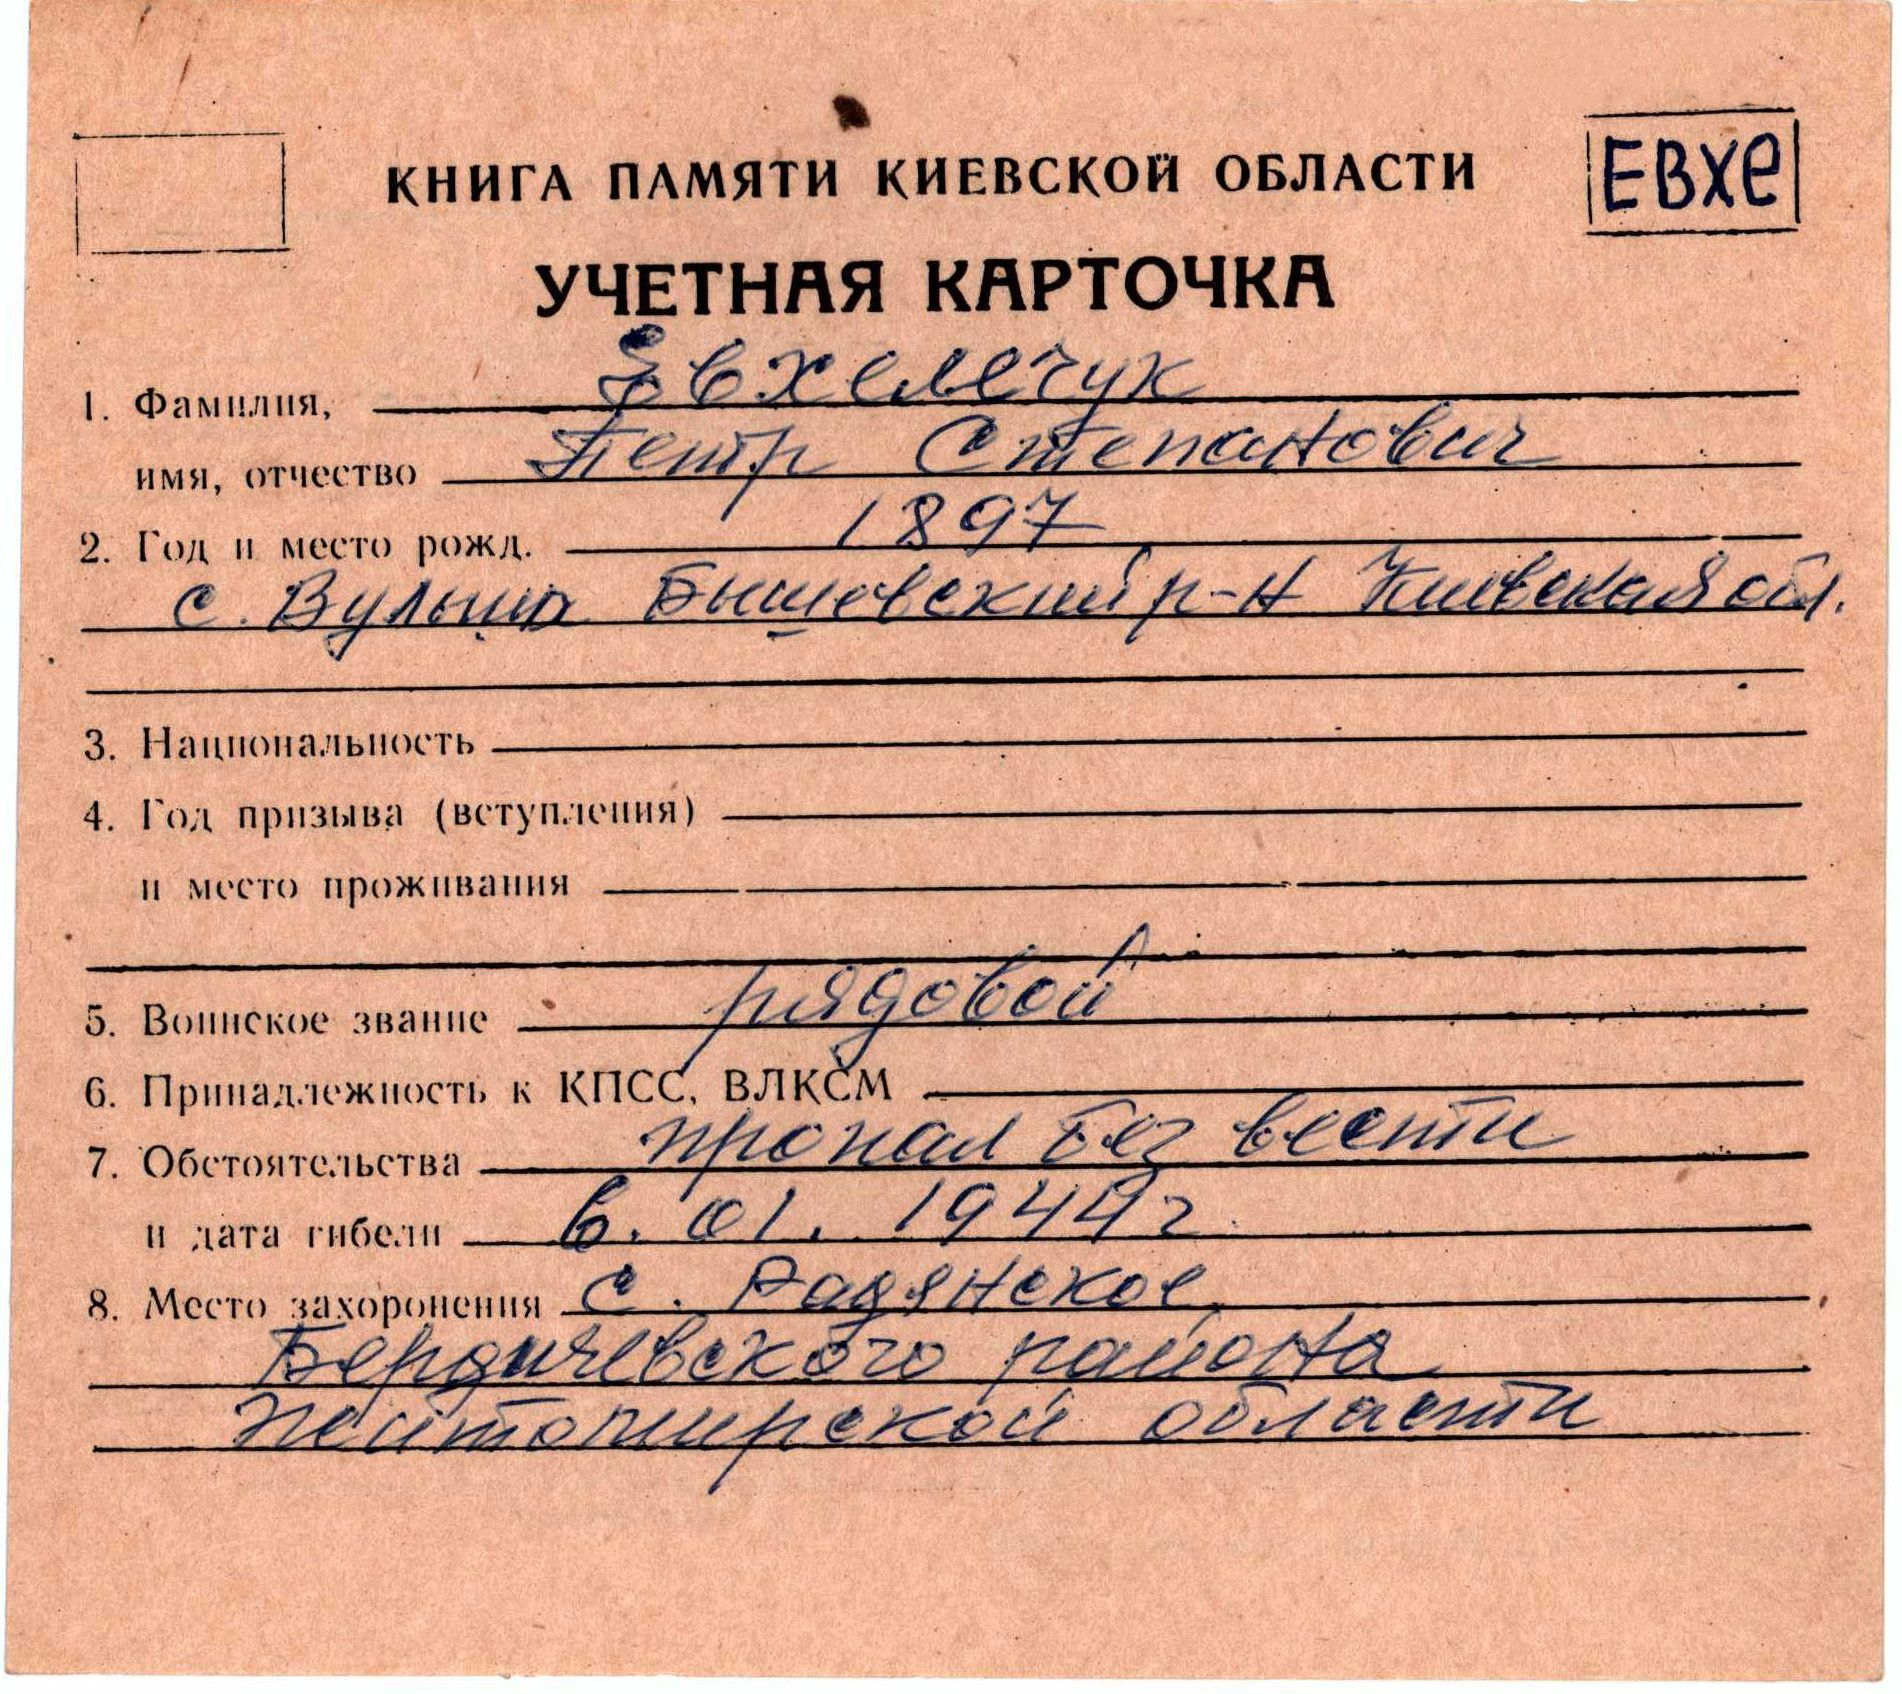 КНИГА ПАМЯТИ КИЕВСКОЙ ОБЛАСТИ
ЕВХЕ
УЧЕТНАЯ КАРТОЧКА
1. Фамилия, Евхемечук
имя, отчество Петр Степанович
2. Год и место рожд. 1897
с. Бышевский р-н Киевская обл.
3. Национальность
4. Год призыва (вступления)
и место проживания
5. Воинское звание рядовой
6. Принадлежность к КПСС, ВЛКСМ
7. Обстоятельства пропал без вести
и дата гибели 6.01.1944г.
8. Место захоронения с. Радянское,
Бердичевского района
Житомирской области